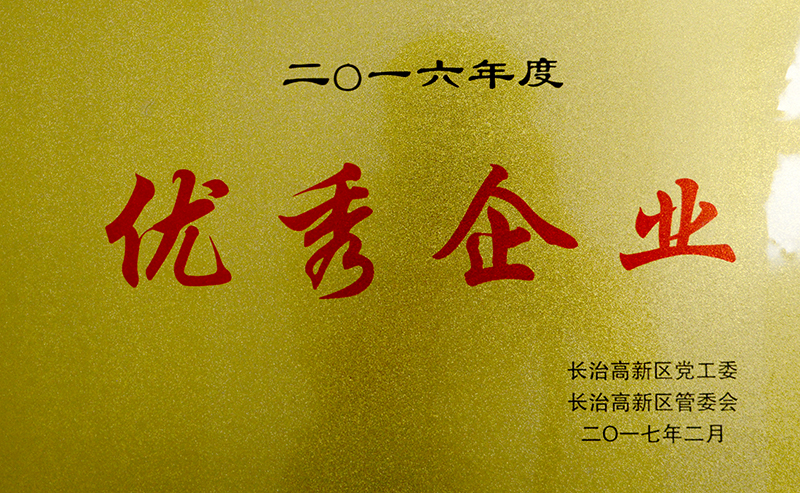 二〇一六年度
优秀企业
长治高新区党工委
长治高新区管委会
二〇一七年二月